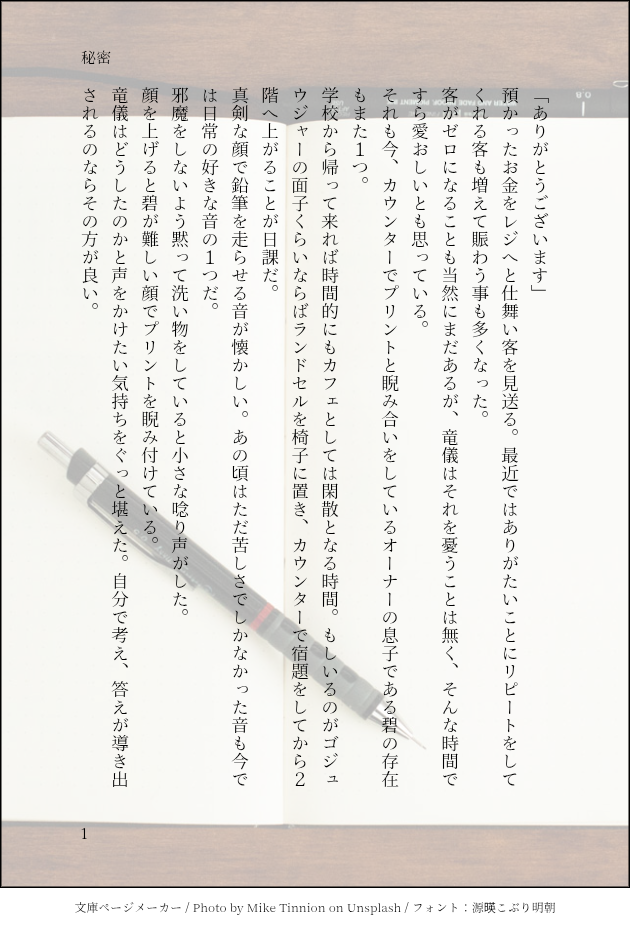 秘密
「ありがとうございます」
預かったお金をレジへと仕舞い客を見送る。最近ではありがたいことにリピートをして
くれる客も増えて賑わう事も多くなった。
客がゼロになることも当然にまだあるが、竜儀はそれを憂うことは無く、そんな時間で
すら愛おしいとも思っている。
それも今、カウンターでプリントと睨み合いをしているオーナーの息子である碧の存在
もまた１つ。
学校から帰って来れば時間的にもカフェとしては閑散となる時間。もしいるのがゴジュ
ウジャーの面子くらいならばランドセルを椅子に置き、カウンターで宿題をしてから２
階へ上がることが日課だ。
真剣な顔で鉛筆を走らせる音が懐かしい。あの頃はただ苦しさでしかなかった音も今で
は日常の好きな音の１つだ。
邪魔をしないよう黙って洗い物をしていると小さな唸り声がした。
顔を上げると碧が難しい顔でプリントを睨み付けている。
竜儀はどうしたのかと声をかけたい気持ちをぐっと堪えた。自分で考え、答えが導き出
されるのならその方が良い。
1
文庫ページメーカー / Photo by Mike Tinnion on Unsplash / フォント：源暎こぶり明朝